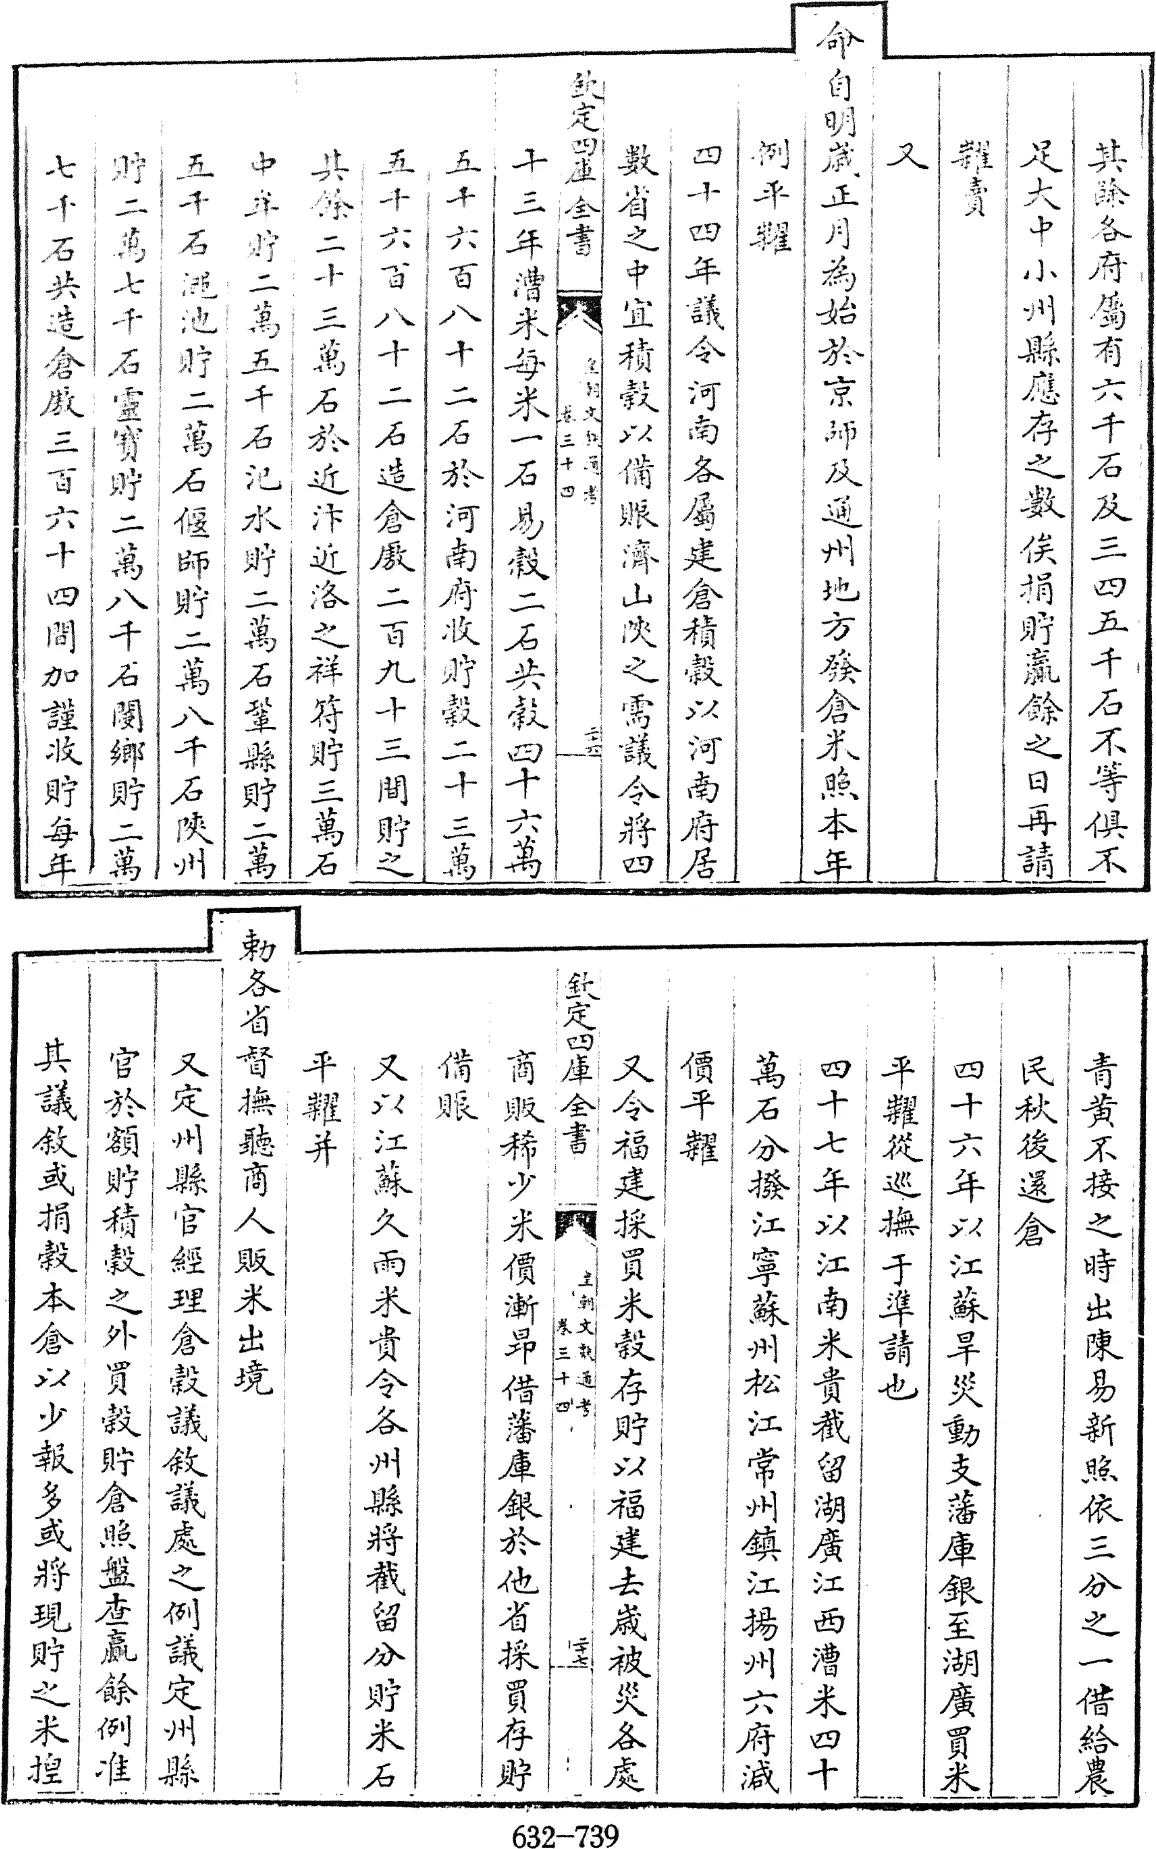 其餘各府屬有六千石及三四五千石不等俱不
足大中小州縣應存之數俟捐貯贏餘之日再請
糶賣
又
命自明歲正月為始於京師及通州地方發倉米照本年
例平糶
四十四年議令河南各屬建倉積穀以河南府居
數省之中宜積穀以備賑濟山陜之需議令將四
欽定四庫全書
皇朝文獻通考
卷三十四
十三年漕米每米一石易穀二石共穀四十六萬
五千六百八十二石於河南府收貯穀二十三萬
五千六百八十二石造倉廒二百九十三間貯之
其餘二十三萬石於近汴近洛之祥符貯三萬石
中牟貯二萬五千石氾水貯二萬石鞏縣貯二萬
五千石澠池貯二萬石偃師貯二萬八千石陜州
貯二萬七千石靈寶貯二萬八千石閿鄉貯二萬
七千石共造倉廒三百六十四間加謹收貯每年
青黃不接之時出陳易新照依三分之一借給農
民秋後還倉
四十六年以江蘇旱災動支藩庫銀至湖廣買米
平糶從巡撫于準請也
四十七年以江南米貴截留湖廣江西漕米四十
萬石分撥江寧蘇州松江常州鎮江揚州六府減
價平糶
又令福建採買米穀存貯以福建去歲被災各處
欽定四庫全書
皇朝文獻通考
卷三十四
二十七
商販稀少米價漸昂借藩庫銀於他省採買存貯
備賑
又以江蘇久雨米貴令各州縣將截留分貯米石
平糶并
勅各省督撫聽商人販米出境
又定州縣官經理倉穀議敘議處之例議定州縣
官於額貯積穀之外買穀貯倉照盤查贏餘例准
其議敘或捐穀本倉以少報多或將現貯之米捏
632-739